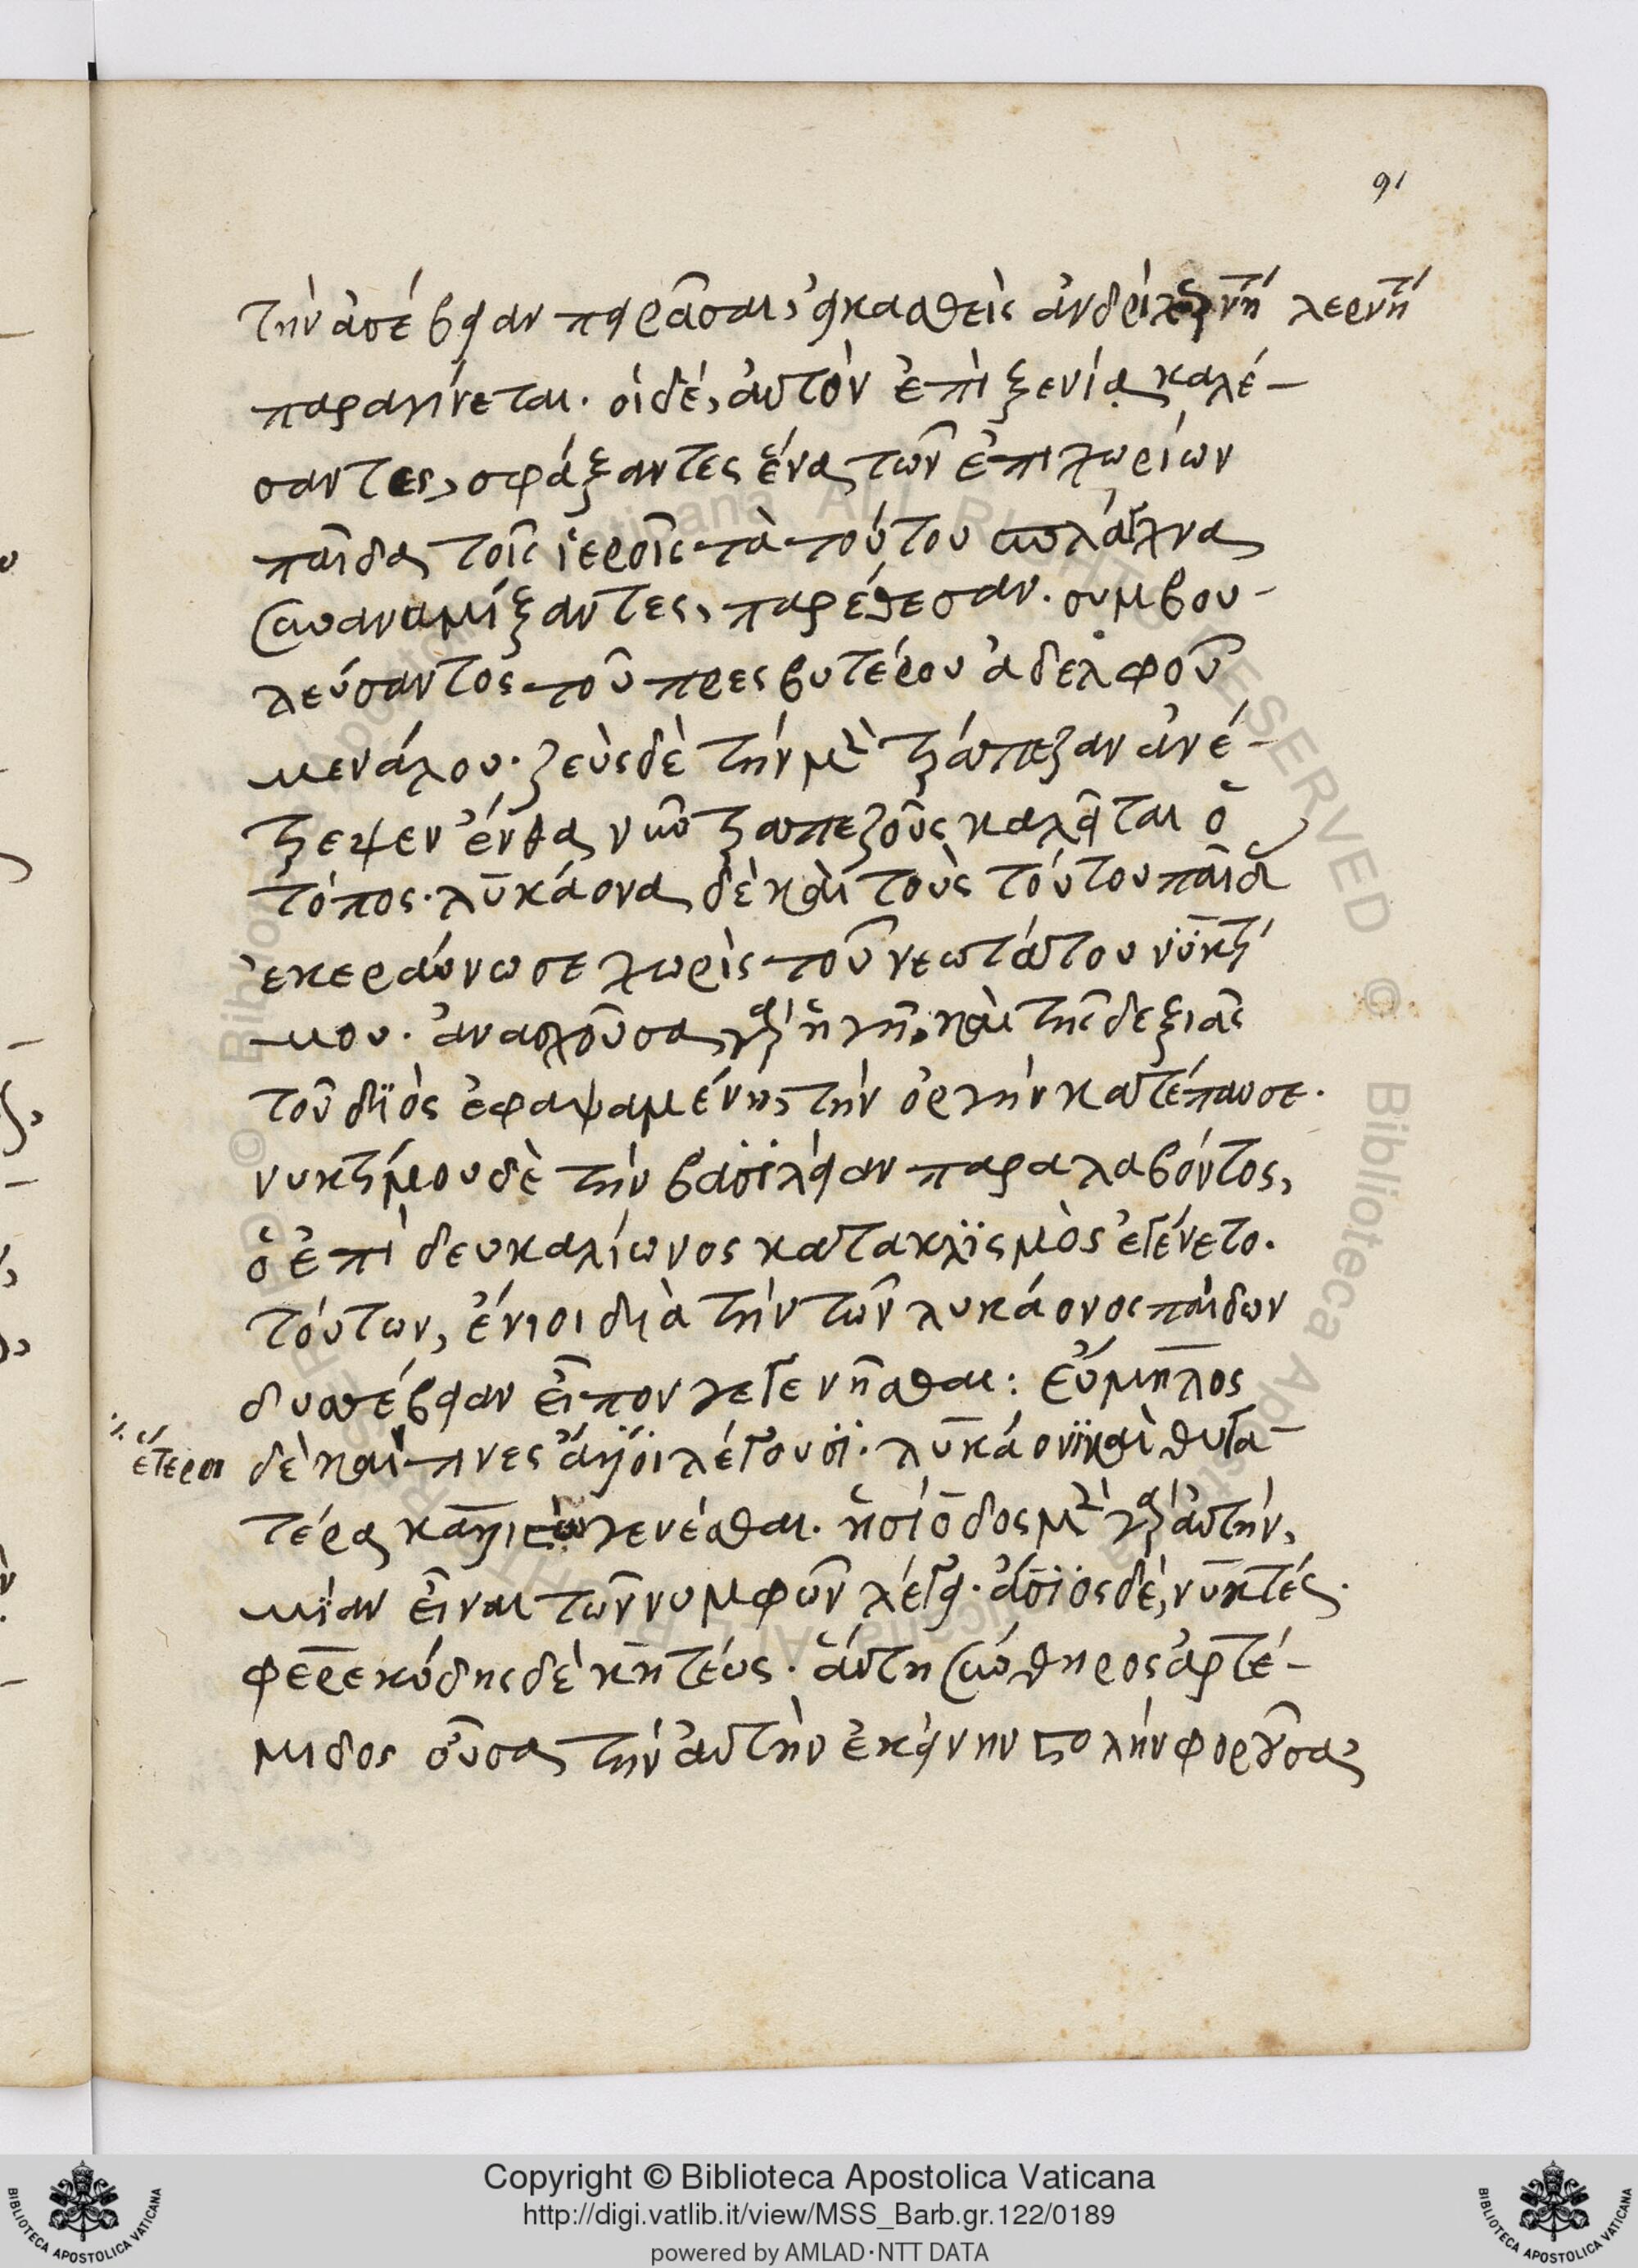 91
τὴν ἀσέβειαν πειρᾶσαι, εἰκασθεὶς ἀνδρὶ χερνήτῃ λερνήτῃ
παραγίνεται. οἱ δὲ, αὐτὸν ἐπὶ ξενία καλέ-
σαντες, σφάξαντες ἕνα τῶν ἐπιχωρίων
παῖδα τοῖς ἱεροῖς τὰ τούτου σπλάγχνα
συναναμίξαντες, παρέθεσαν. συμβου-
λεύσαντος τοῦ πρεσβυτέρου ἀδελφοῦ
μενάλου. ζεὺς δὲ τὴν μὲν τράπεζαν ἀνέ-
τρεψεν ἔνθα νῦν τραπεζοῦς καλεῖται ὁ
τόπος. λυκάονα δὲ καὶ τοὺς τούτου παῖδας
ἐκεραύνωσε χωρὶς τοῦ νεωτάτου νυκτί
μου. ἀνασχοῦσα γὰρ ἡ γῆ, καὶ τῆς δεξιᾶς
τοῦ διὸς ἐφαψαμένη, τὴν ὀργὴν κατέπαυσε.
νυκτίμου δὲ τὴν βασιλείαν παραλαβόντος,
ὁ ἐπὶ δευκαλίωνος κατακλισμὸς ἐγένετο.
τούτων, ἔνιοι διὰ τὴν τῶν λυκάονος παίδων
δυσσέβειαν εἶπον γεγενῆσθαι: εὔμηλος
δὲ καὶ τινες ἄλλοι λέγουσι. λυκάονι καὶ θυγα-
⁒ ἕτεροι
τέρα καλλιστὼ γενέσθαι. ἡσίοδος μὲν γὰρ αὐτὴν,
μίαν εἶναι τῶν νυμφῶν λέγει. ἄσιος δὲ, νυκτέως.
φερεκύδης δὲ κητέως. αὕτη σύνθηρος ἀρτέ-
μιδος οὖσα τὴν αὐτὴν ἐκείνην στολὴν φοροῦσα
Copyright © Biblioteca Apostolica Vaticana
http://digi.vatlib.it/view/MSS_Barb.gr.122/0189
powered by AMLAD·NTT DATA